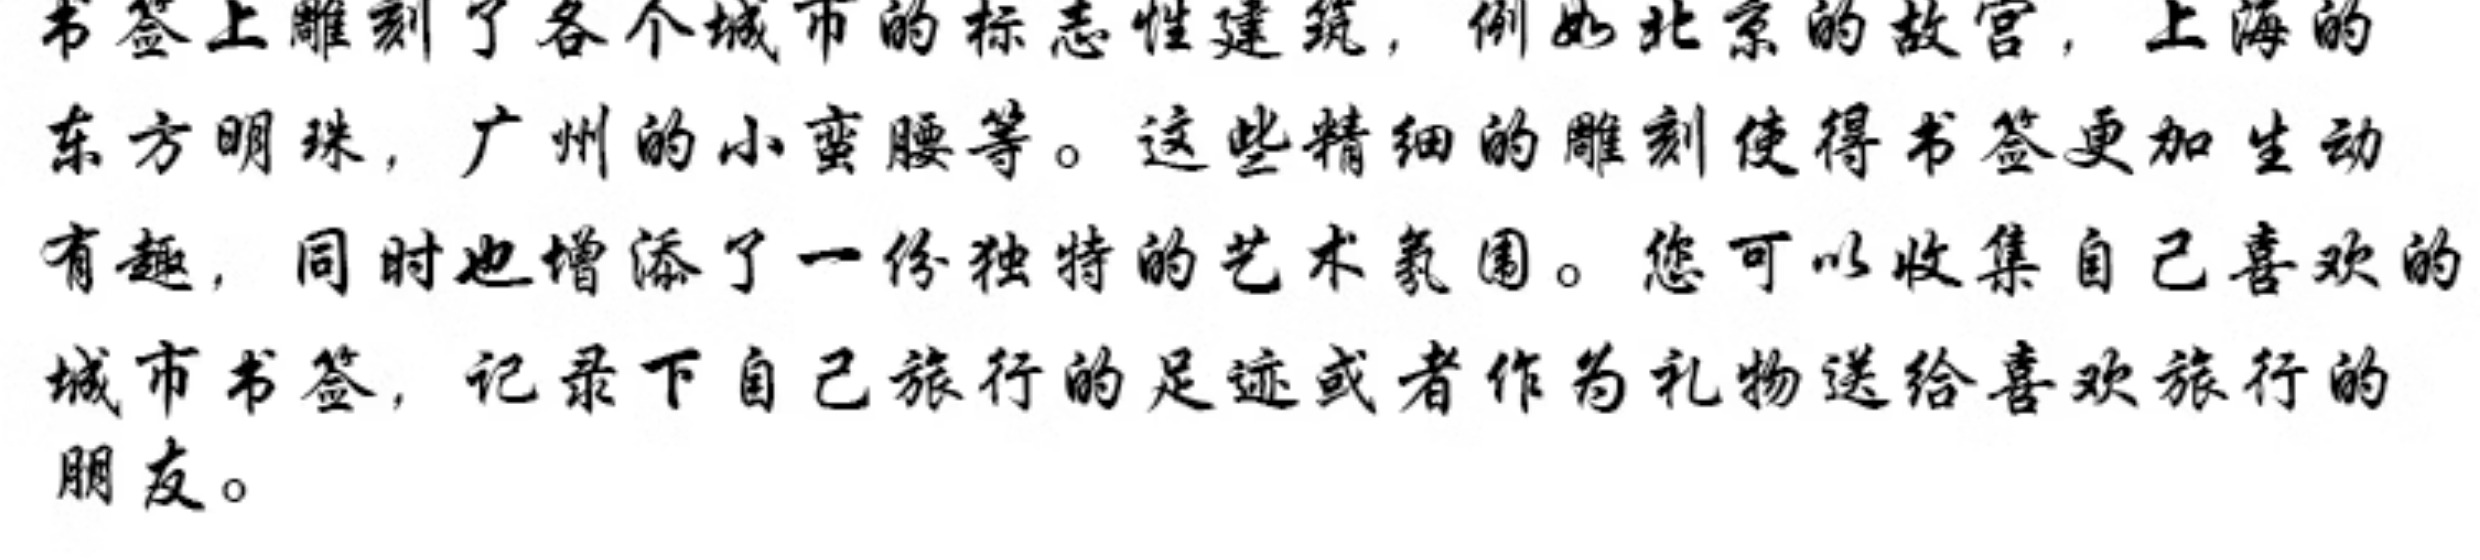 书签上雕刻了各个城市的标志性建筑，例如北京的故宫，上海的
东方明珠，广州的小蛮腰等。这些精细的雕刻使得书签更加生动
有趣，同时也增添了一份独特的艺术氛围。您可以收集自己喜欢的
城市书签，记录下自己旅行的足迹或者作为礼物送给喜欢旅行的
朋友。